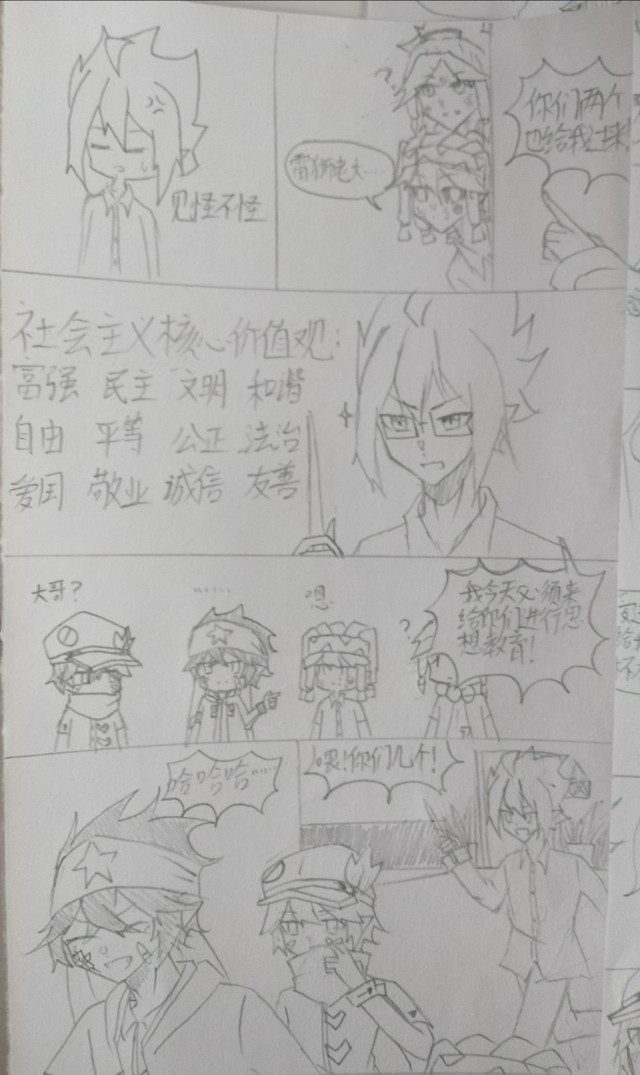 见怪不怪
?
雷狮老大……
你们两个
也给我过来
社会主义核心价值观:
富强 民主 文明 和谐
自由 平等 公正 法治
爱国 敬业 诚信 友善
大哥?
……
嗯
?
我今天必须来
给你们进行思
想教育!
哈哈哈……
喂!你们几个!